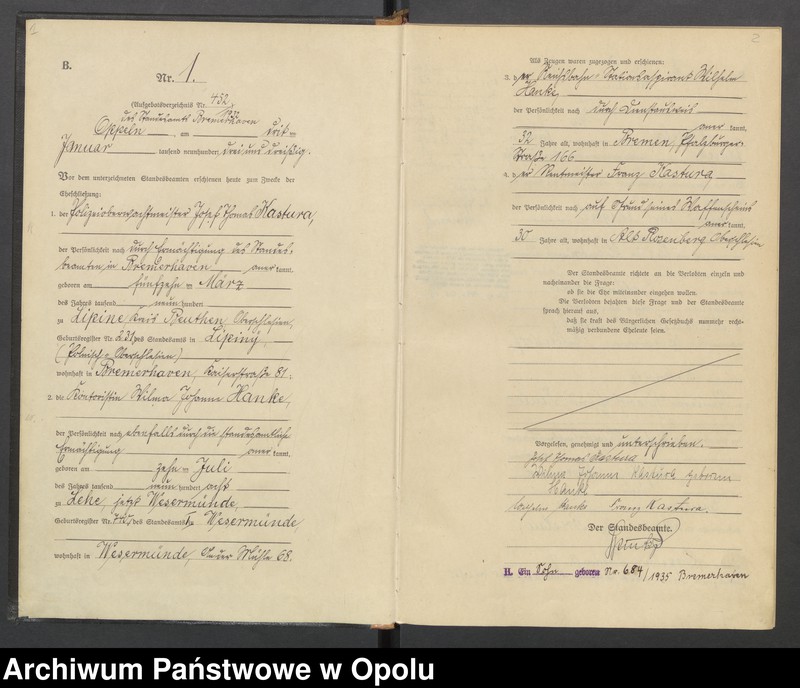 B.
Nr. 1.
(Aufgebotsverzeichnis Nr. 452
des Standesamts Bremerhaven
Oppeln, am drit
Januar tausend neunhundert drei und dreißig.
Vor dem unterzeichneten Standesbeamten erschienen heute zum Zwecke der
Eheschließung:
1. der Polizeioberwachtmeister Josef Thomas Kastura,
der Persönlichkeit nach durch Ermächtigung des Standes-
beamten in Bremerhaven anerkannt,
geboren am fünfzehn ten März
des Jahres tausend neun hundert
zu Lipine Kreis Beuthen, Oberschlesien,
Geburtsregister Nr. 221 des Standesamts in Lipiny
(Polnisch-Oberschlesien)
wohnhaft in Bremerhaven, Kaiserstraße 81;
2. die Kontoristin Wilma Johanne Hanke,
der Persönlichkeit nach ebenfalls durch die standesamtliche
Ermächtigung anerkannt,
geboren am zehn ten Juli
des Jahres tausend neun hundert acht
zu Lehe, jetzt Wesermünde,
Geburtsregister Nr. des Standesamts Wesermünde,
wohnhaft in Wesermünde, Mühle 68.
2
Als Zeugen waren zugezogen und erschienen:
3. der Reichsbahn-Stationsaspirant Wilhelm
Hanke,
der Persönlichkeit nach durch Dienstausweis
anerkannt,
32 Jahre alt, wohnhaft in Bremen, Pfalzburger-
Straße 166
4. der Rentmeister Franz Kastura
der Persönlichkeit nach auf Grund seines Waffenscheins
anerkannt,
30 Jahre alt, wohnhaft in Alt Rosenberg Oberschlesien
Der Standesbeamte richtete an die Verlobten einzeln und
nacheinander die Frage:
ob sie die Ehe miteinander eingehen wollen.
Die Verlobten bejahten diese Frage und der Standesbeamte
sprach hierauf aus,
daß sie kraft des Bürgerlichen Gesetzbuchs nunmehr recht-
mäßig verbundene Eheleute seien.
Vorgelesen, genehmigt und unterschrieben.
Josef Thomas Kastura
Wilma Johanne Kastura geborene
Hanke
Wilhelm Hanke Franz Kastura.
Der Standesbeamte.
H. Ein Sohn geboren Nr. 684/1935 Bremerhaven
Archiwum Państwowe w Opolu